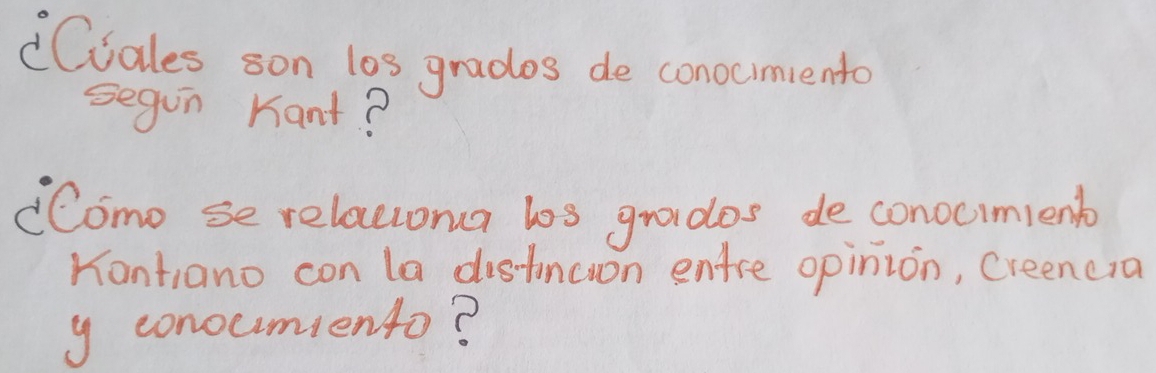 ¿Cúales son los grados de conocimiento
según Kant?
¿Cómo se relaciona los grados de conocimiento
Kantiano con la distinción entre opinión, creencia
y conocimiento?